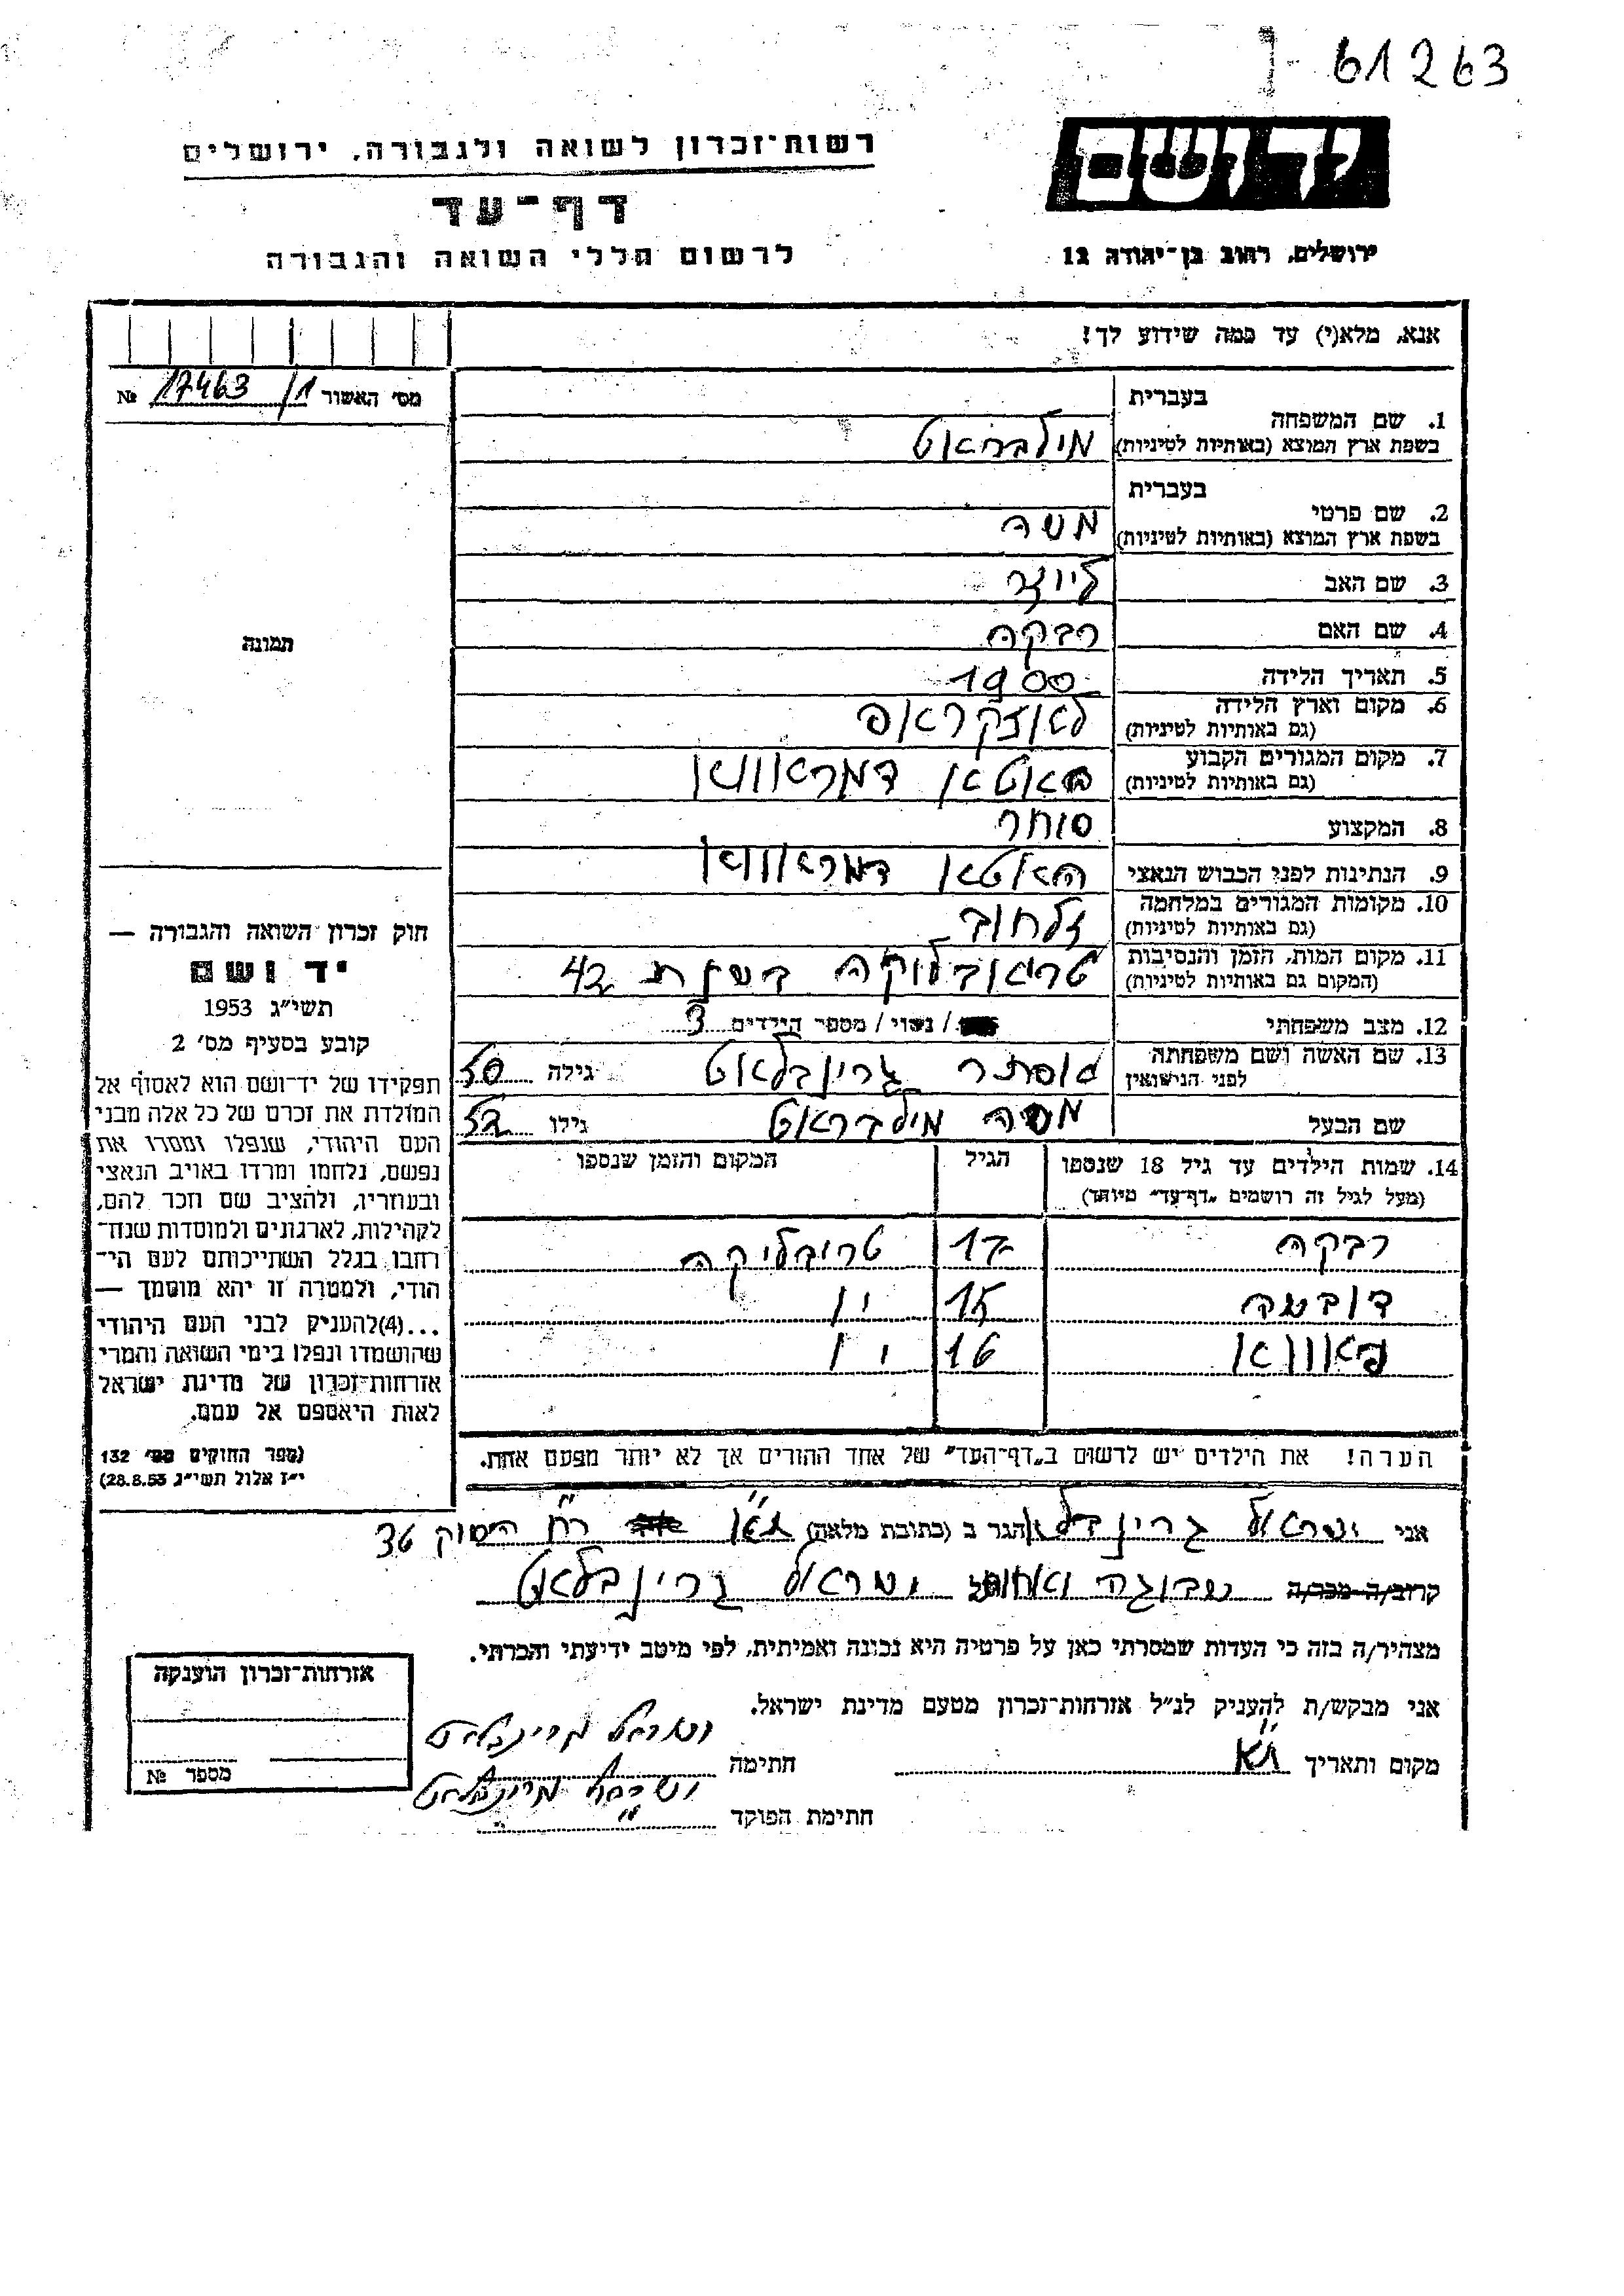 61263
רשות־זכרון לשואה ולגבורה, ירושלים
דף־עד
לרשום חללי השואה והגבורה
ידושם
ירושלים, רחוב בן־יהודה 12
אנא, מלא(י) עד כמה שידוע לך!
מס׳ האשור 17463/1 №
בעברית
1. שם המשפחה
בשפת ארץ המוצא (באותיות לטיניות) מילבראט
בעברית
2. שם פרטי
בשפת ארץ המוצא (באותיות לטיניות) משה
3. שם האב
4. שם האם רבקה
5. תאריך הלידה 1900
6. מקום וארץ הלידה
(גם באותיות לטיניות)
7. מקום המגורים הקבוע
(גם באותיות לטיניות)
8. המקצוע סוחר
9. הנתינות לפני הכבוש הנאצי
10. מקומות המגורים במלחמה
(גם באותיות לטיניות)
11. מקום המות, הזמן והנסיבות בשנת 42
(המקום גם באותיות לטיניות)
12. מצב משפחתי / נשוי / מספר הילדים 3
13. שם האשה ושם משפחתה גרינבלאט גילה 50
לפני הנישואין
שם הבעל משה מילבראט גילו 52
14. שמות הילדים עד גיל 18 שנספו הגיל המקום והזמן שנספו
(מעל לגיל זה רושמים „דף־עד״ מיוחד)
רבקה 17 טריבליקה
15 "
16 "
הערה! את הילדים יש לרשום ב„דף־העד״ של אחד ההורים אך לא יותר מפעם אחת.
תמונה
חוק זכרון השואה והגבורה —
יד ושם
תשי״ג 1953
קובע בסעיף מס׳ 2
תפקידו של יד־ושם הוא לאסוף אל
המולדת את זכרם של כל אלה מבני
העם היהודי, שנפלו ומסרו את
נפשם, נלחמו ומרדו באויב הנאצי
ובעוזריו, ולהציב שם וזכר להם,
לקהילות, לארגונים ולמוסדות שנח־
רחבו בגלל השתייכותם לעם הי־
הודי, ולמטרה זו יהא מוסמך —
...(4)להעניק לבני העם היהודי
שהושמדו ונפלו בימי השואה והמרי
אזרחות־זכרון של מדינת ישראל
לאות היאספם אל עמם.
(ספר החוקים מס׳ 132
י״ז אלול תשי״ג 28.8.53)
אני ישראל הגר ב (כתובת מלאה) ת״א 36
קרוב/ה מכר/ה ישראל גרינבלאט
מצהיר/ה בזה כי העדות שמסרתי כאן על פרטיה היא נכונה ואמיתית, לפי מיטב ידיעתי והכרתי.
אני מבקש/ת להעניק לנ״ל אזרחות־זכרון מטעם מדינת ישראל.
מקום ותאריך ת״א חתימה ישראל גרינבלאט
חתימת הפוקד ישראל גרינבלאט
אזרחות־זכרון הוענקה
מספר №